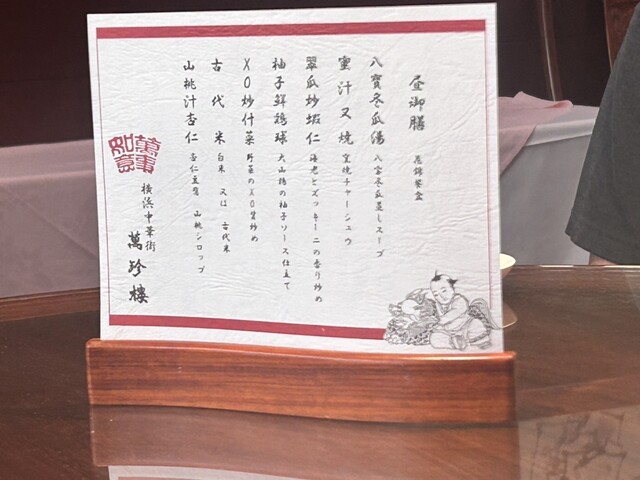 昼御膳 花錦餐盒
八寳冬瓜湯 八宝冬瓜蒸しスープ
蜜汁叉燒 窯焼チャーシュウ
翠瓜炒蝦仁 海老とズッキーニの香り炒め
柚子鮮鶏球 大山鶏の柚子ソース仕立て
XO炒什菜 野菜のXO醤炒め
古代米 白米 又は 古代米
山桃汁杏仁 杏仁豆腐 山桃シロップ
横浜中華街
萬珍樓
萬事如意